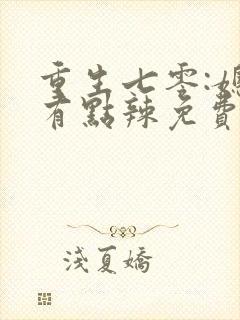 重生七零:媳
有點辣免費
淺夏嬌